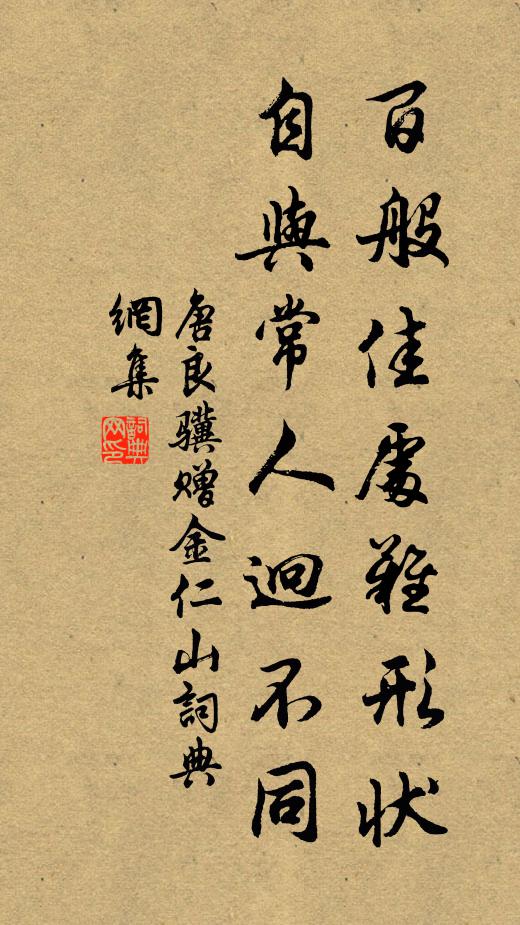 百般佳處難形狀
自與常人迥不同
唐良驥贈金仁山詞典
網集
詞典
网印